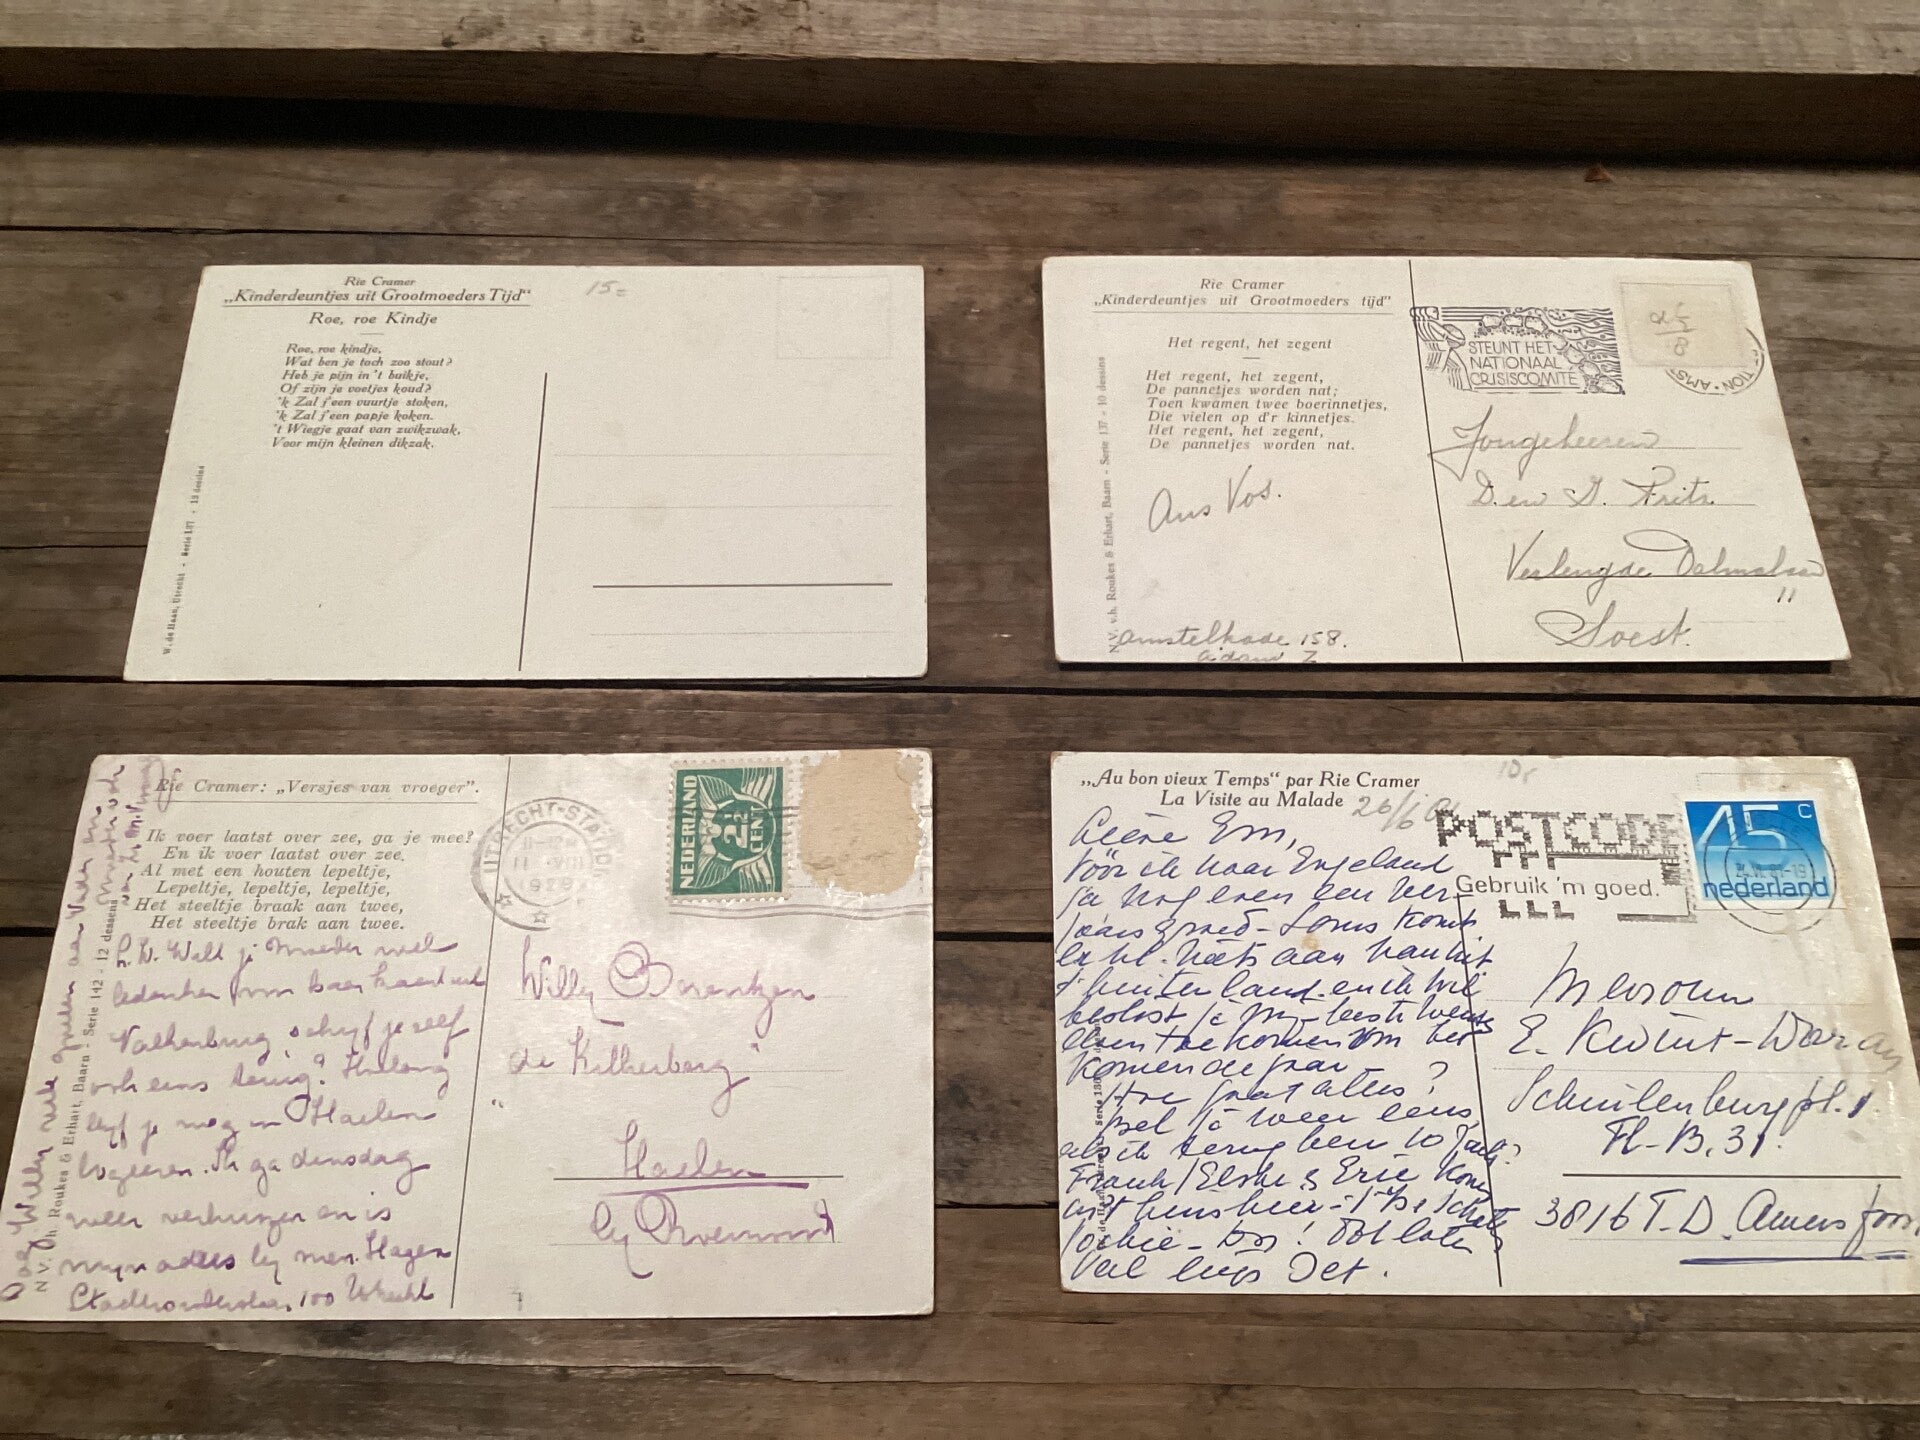 Rie Cramer
„Kinderdeuntjes uit Grootmoeders Tijd"
Roe, roe Kindje
Roe, roe kindje,
Wat ben je toch zoo stout?
Heb je pijn in 't buikje,
Of zijn je voetjes koud?
'k Zal j'een vuurtje stoken,
'k Zal j'een papje koken.
't Wiegje gaat van zwikzwak,
Voor mijn kleinen dikzak.
15=
W. de Haan, Utrecht - Serie 137 - 12 dessins
Rie Cramer
„Kinderdeuntjes uit Grootmoeders tijd"
Het regent, het zegent
Het regent, het zegent,
De pannetjes worden nat;
Toen kwamen twee boerinnetjes,
Die vielen op d'r kinnetjes.
Het regent, het zegent,
De pannetjes worden nat.
Ans Vos.
Amstelkade 158.
A'dam Z
N.V. v.h. Roukes & Erhart, Baarn - Serie 137 - 10 dessins
STEUNT HET
NATIONAAL
CRISISCOMITÉ
Jongeheeren
D. en J. Frits
Verlengde Dalmalaan
11
Soest.
Rie Cramer: „Versjes van vroeger".
Ik voer laatst over zee, ga je mee?
En ik voer laatst over zee.
Al met een houten lepeltje,
Lepeltje, lepeltje, lepeltje,
Het steeltje braak aan twee,
Het steeltje brak aan twee.
Wilt je Moeder wel
bedanken voor haar kaart uit
Valkenburg, schrijf je zelf
ook eens terug? Hoelang
blijf je nog in Haelen
logeeren. Ik ga dinsdag
weer verhuizen en is
mijn adres bij mevr. Hagen
100 Utrecht
Dag Willy vele groeten aan Vader en
Moeder ook van
N.V. v.h. Roukes & Erhart, Baarn - Serie 142 - 12 dessins
UTRECHT-STATION
1929
NEDERLAND
2½
CENT
Willy Berentzen
de Kilkenberg"
Haelen
bij Roermond
„Au bon vieux Temps" par Rie Cramer
La Visite au Malade
26/6
10,
Lieve Em,
Vóór ik naar Engeland
ga nog even een ver-
jaars groet - Louis komt
't buitenland en ik wil
beslist je mijn beste wensen
doen toekomen voor het
komende jaar
Hoe gaat alles?
Bel je weer eens
als ik terug ben 10 Juli?
Frank, Elske & Eric komen
Veel liefs Jet.
POSTCODE
Gebruik 'm goed.
45 c
nederland
Mevrouw
E. Kwint-
Schuilenburgpl. 1
Fl-B.31
3816 T.D. Amersfoort